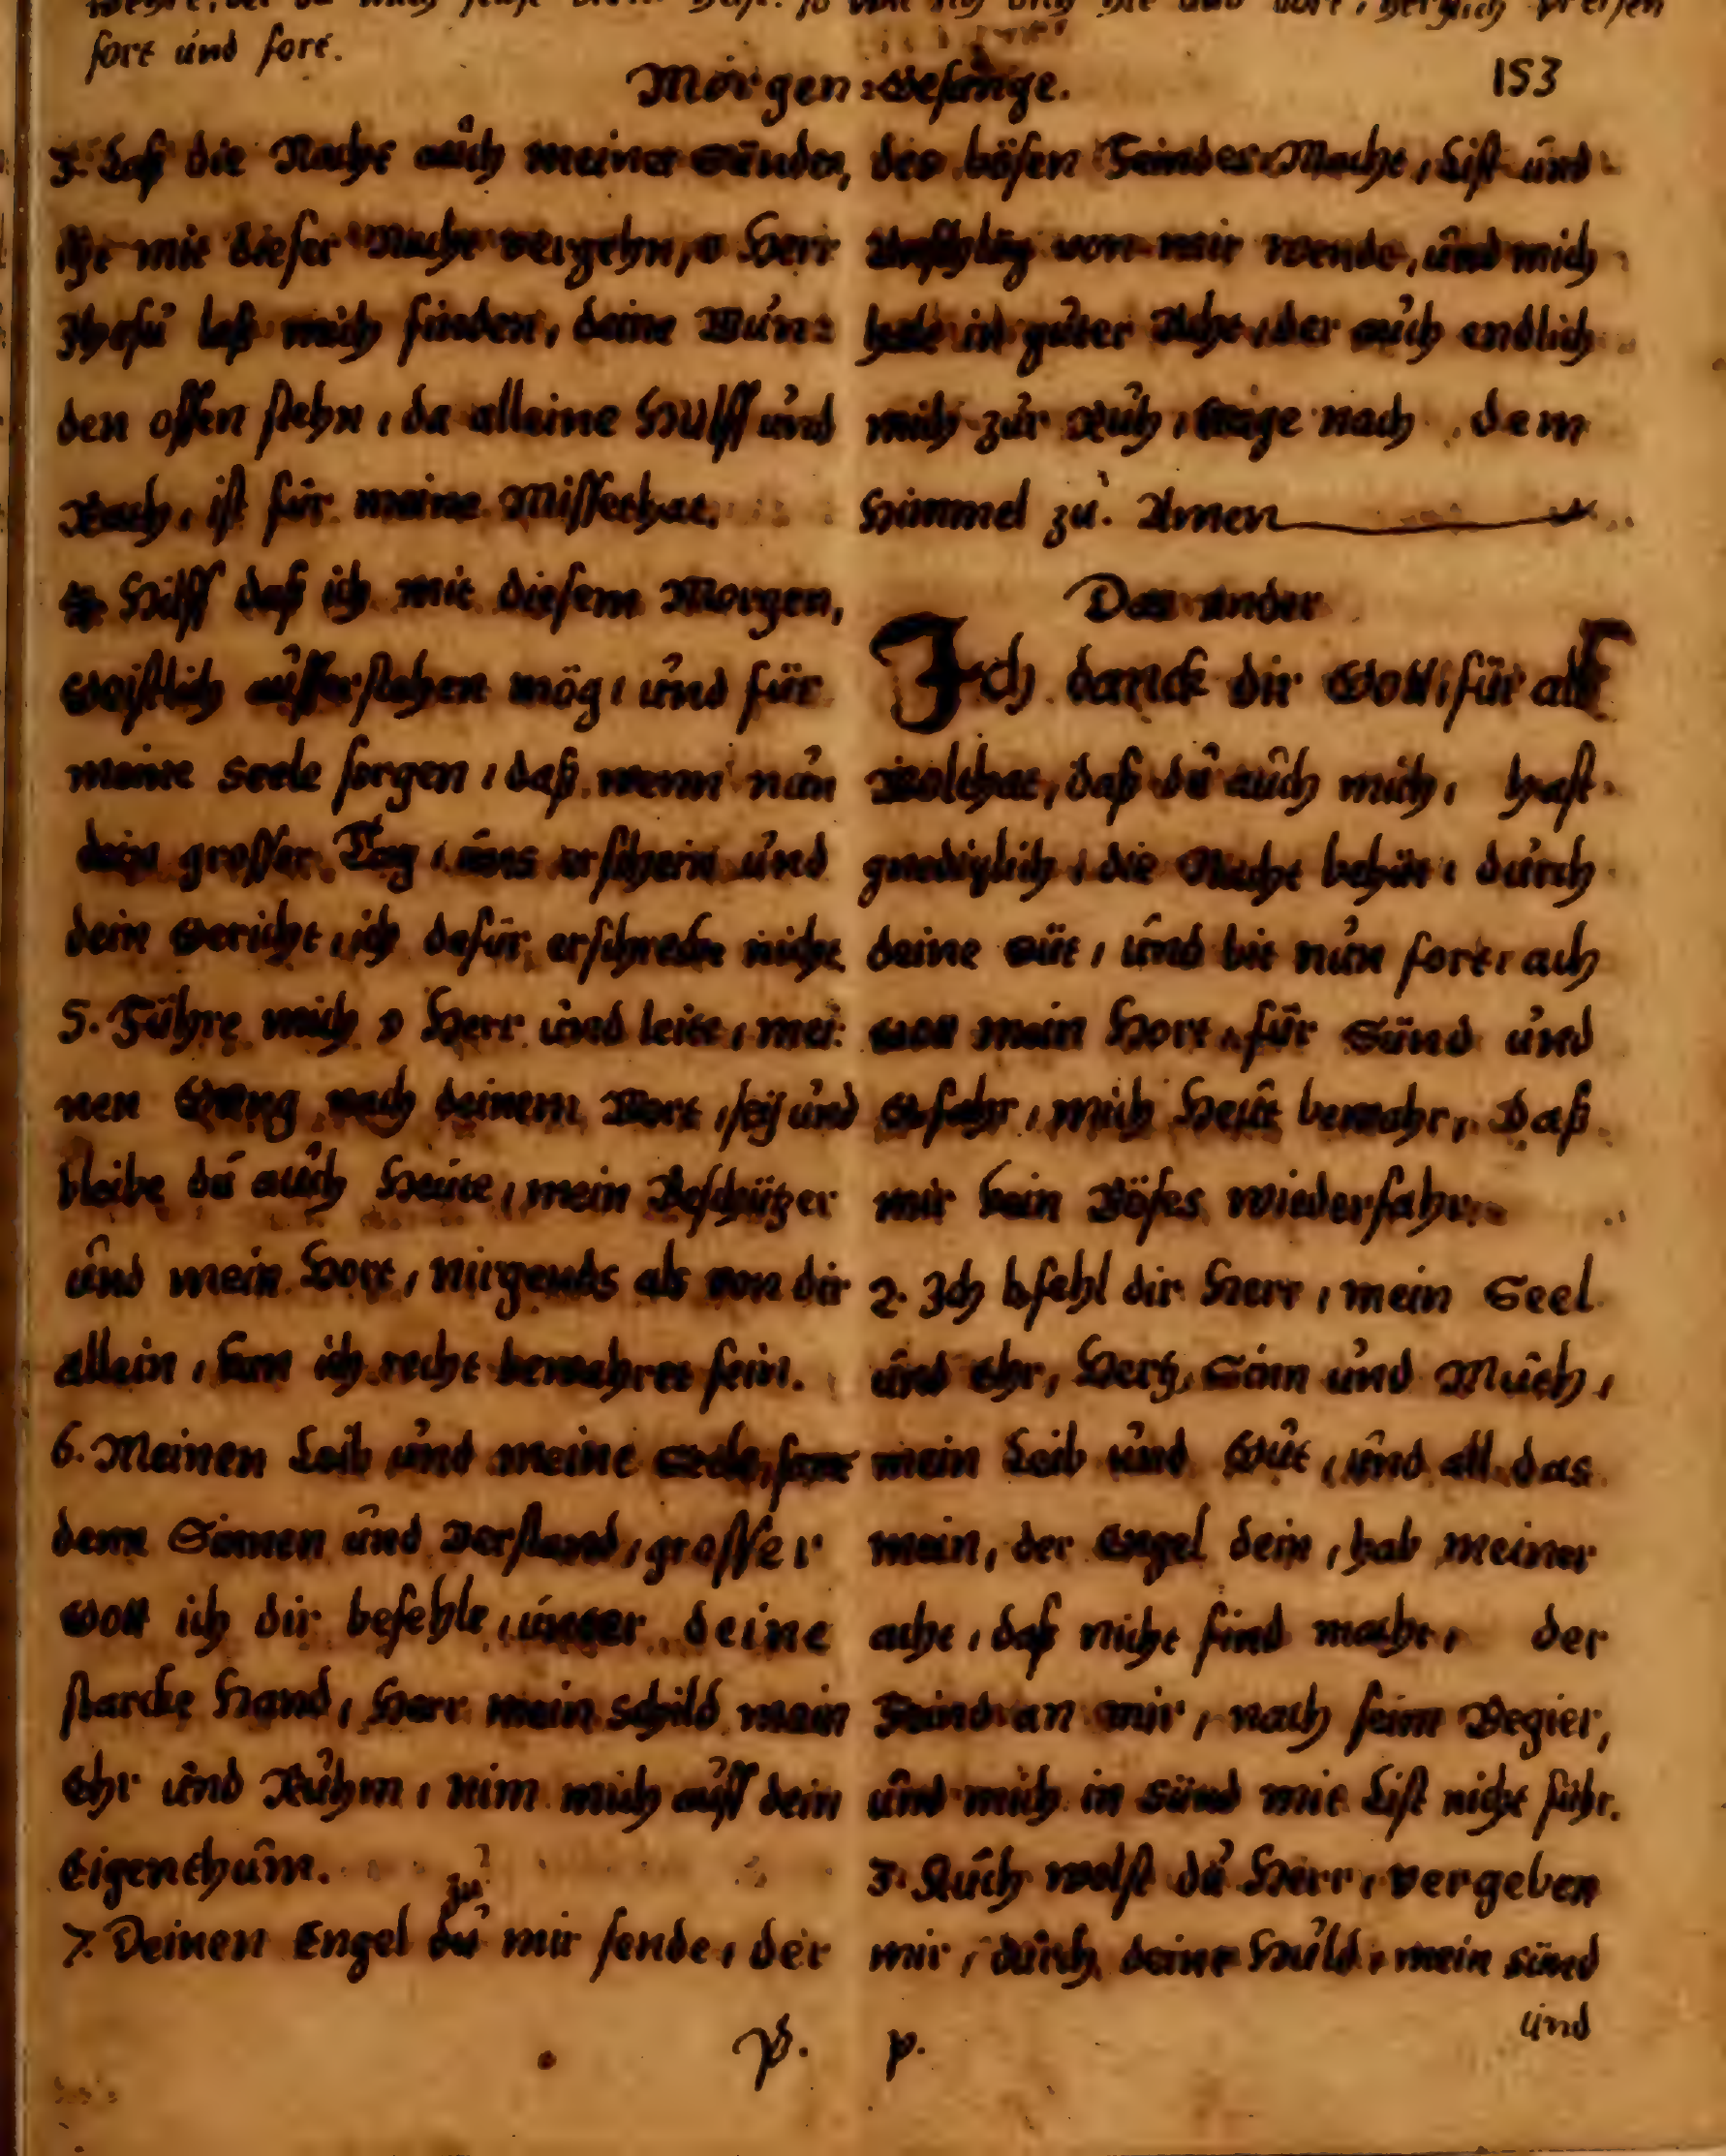 fort und fort.
Morgen=Gesänge. 153
3. Laß die Nacht auch meiner Sünden,
itzt mit dieser Nacht vergehn, o Herr
Jhesu laß mich finden, deine Wun=
den offen stehn, da alleine Hülff und
Rach, ist für meine Missethat.
4. Hilff daß ich mit diesem Morgen,
Geistlich aufferstehen mög, und für
meine Seele sorgen, daß wenn nun
dein grosser Tag, uns erschein und
dein Gericht, ich dafür erschrecke nicht
5. Führe mich o Herr und leite, mei=
nen Gang nach deinem Wort, sey und
bleibe du auch Heute, mein Beschützer
und mein Hort, nirgends als von dir
allein, kan ich recht bewahret sein.
6. Meinen Leib und meine Seele, samt
dem Sinnen und Verstand, grosser
Gott ich dir befehle, unter deine
starcke Hand, Herr mein Schild mein
Ehr und Ruhm, nim mich auff dein
Eigenthum.
zu
7. Deinen Engel du mir sende, der
des bösen Feindes Macht, List und
Anschläg von mir wende, und mich
halt in guter Acht, der auch endlich
mich zur Ruh, trage nach dem
Himmel zu. Amen
Das ander
Ich danck dir Gott, für all
Wolthat, daß du auch mich, hast
gnediglich, die Nacht behüt, durch
deine Güt, und bit nun fort, ach
Gott mein Hort, für Sünd und
Gefahr, mich Heut bewahr, Daß
mir kein Böses wiederfahr.
2. Ich bfehl dir Herr, mein Seel
und Ehr, Hertz, Sinn und Muth,
mein Leib und Gut, und all das
mein, der Engel dein, hab meiner
acht, daß nicht find macht, der
Feind an mir, nach seim Begier,
und mich in Sünd mit List nicht führ.
3. Auch wolst du Herr, vergeben
mir, durch deine Huld, mein Sünd
und
p. p.